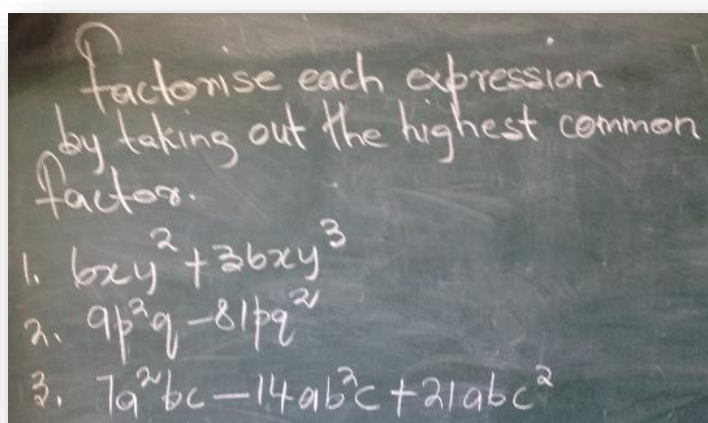 Factorise each expression
by taking out the highest common
factor.
1. 6xy² + 36xy³
2. 9p²q - 81pq²
3. 7a²bc - 14ab²c + 21abc²